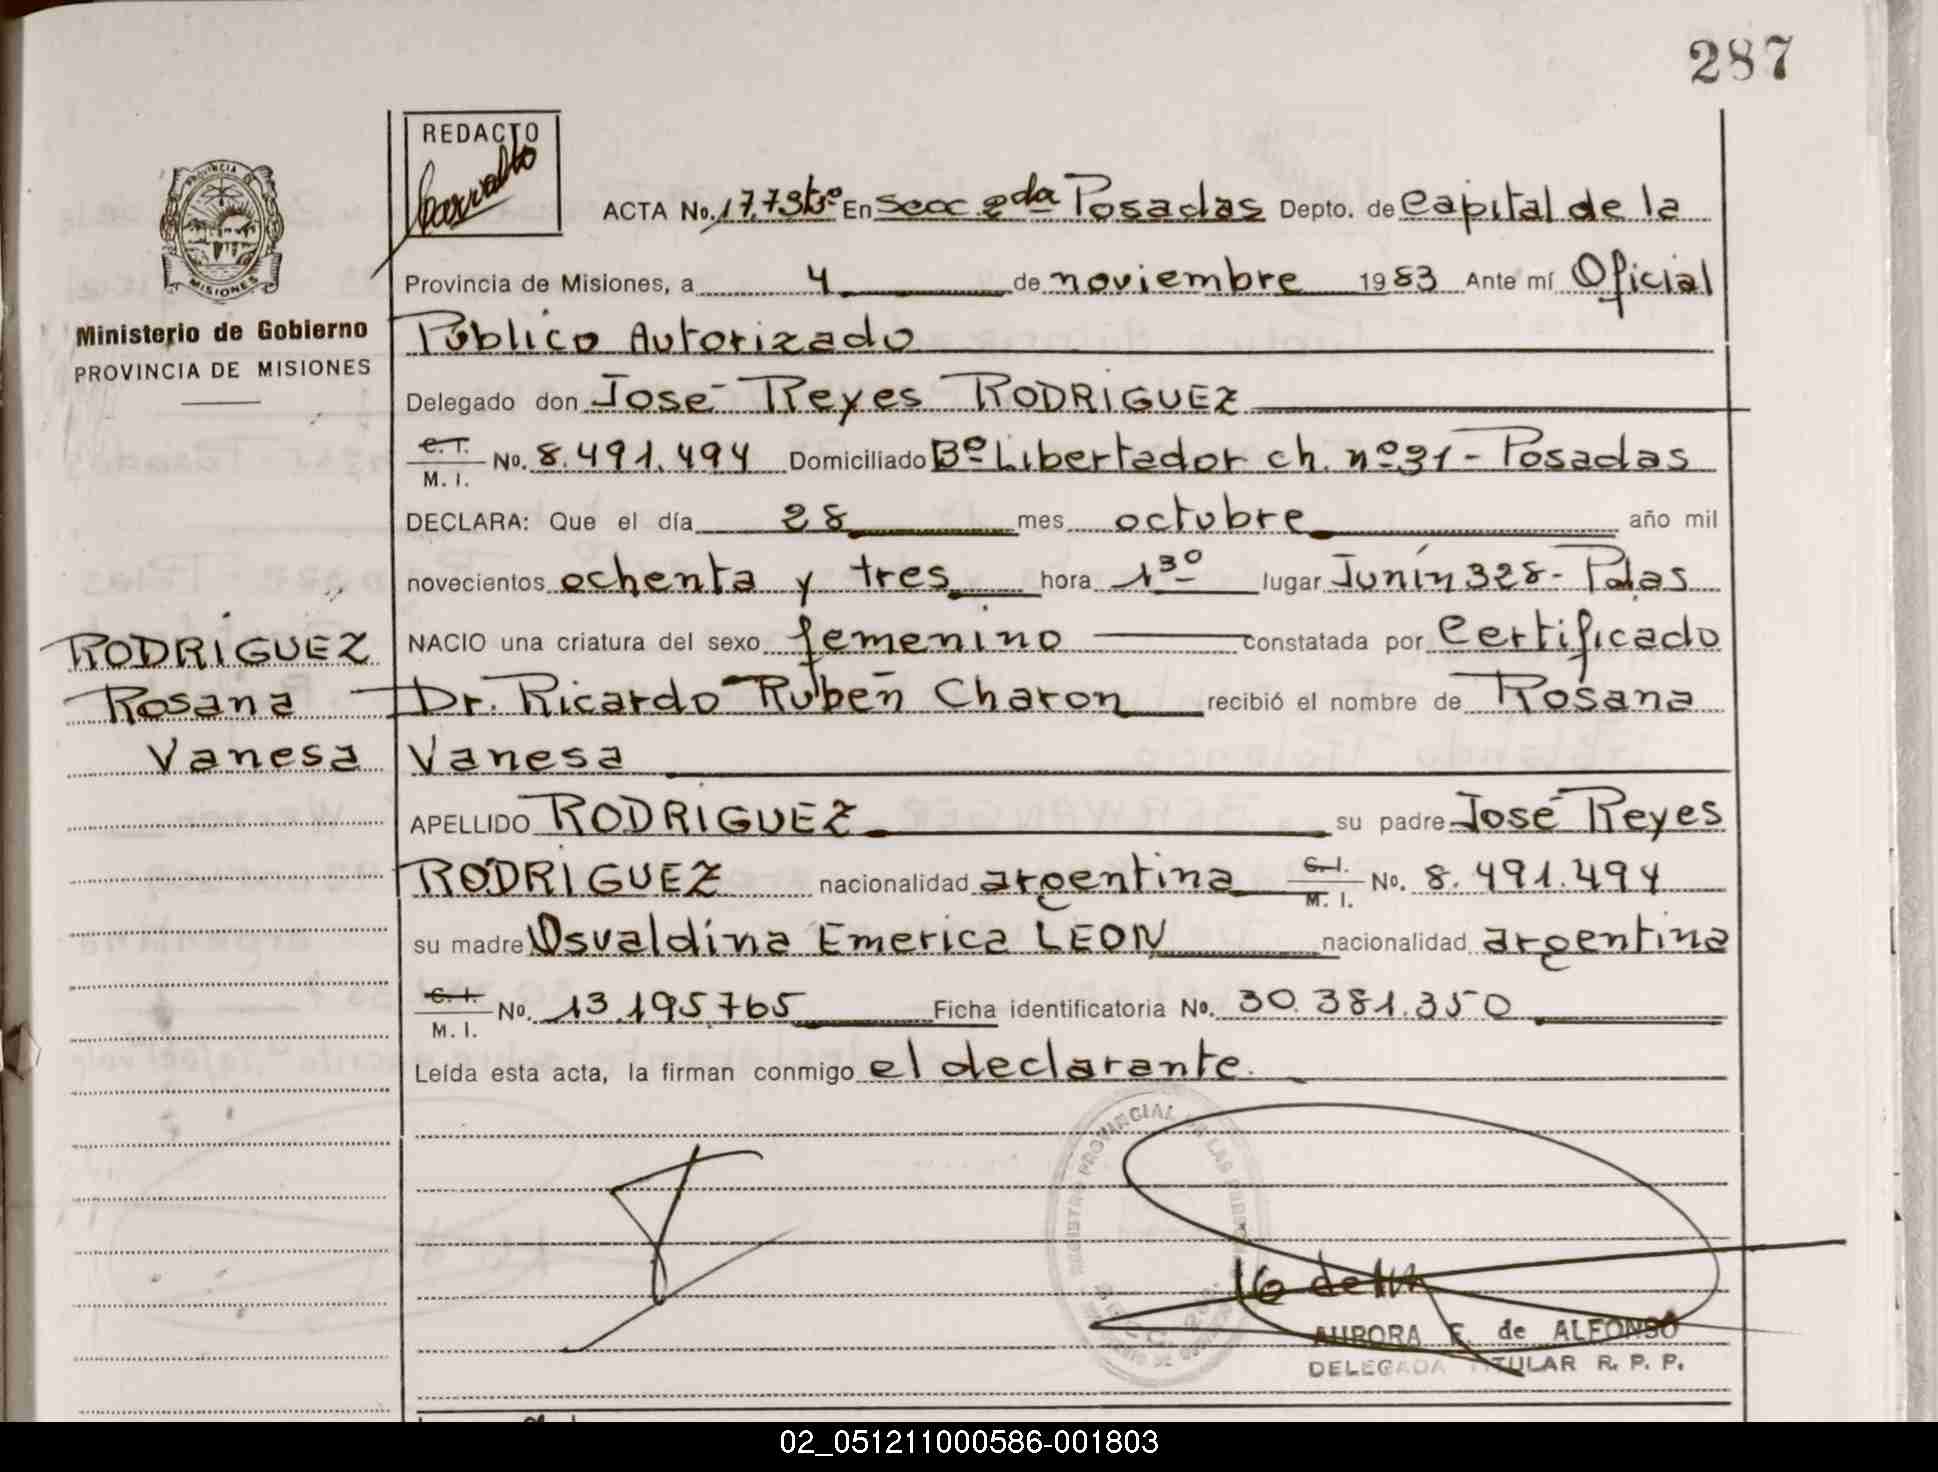 287
REDACTO
ACTA No. En Secc 2da Posadas Depto. de Capital de la
PROVINCIA DE
MISIONES
Provincia de Misiones, a 4 de noviembre 1983 Ante mí Oficial
Ministerio de Gobierno
PROVINCIA DE MISIONES
Público Autorizado
Delegado don José Reyes RODRIGUEZ
C.I. M. I. No. 8.491.494 Domiciliado Bº Libertador ch. nº31 - Posadas
DECLARA: Que el día 28 mes octubre año mil
novecientos ochenta y tres hora 1 30 lugar Junín 328 - Pdas
RODRIGUEZ
Rosana
Vanesa
NACIO una criatura del sexo femenino constatada por Certificado
Dr. Ricardo Rubén Charon recibió el nombre de Rosana
Vanesa
APELLIDO RODRIGUEZ su padre José Reyes
RODRIGUEZ nacionalidad argentina C.I. M. I. No. 8.491.494
su madre Osvaldina Emerica LEON nacionalidad argentina
C.I. M. I. No. 13.195.765 Ficha identificatoria No. 30.381.350
Leída esta acta, la firman conmigo el declarante.
REGISTRO PROVINCIAL DE LAS
AURORA E. de ALFONSO
DELEGADA TITULAR R. P. P.
02_051211000586-001803